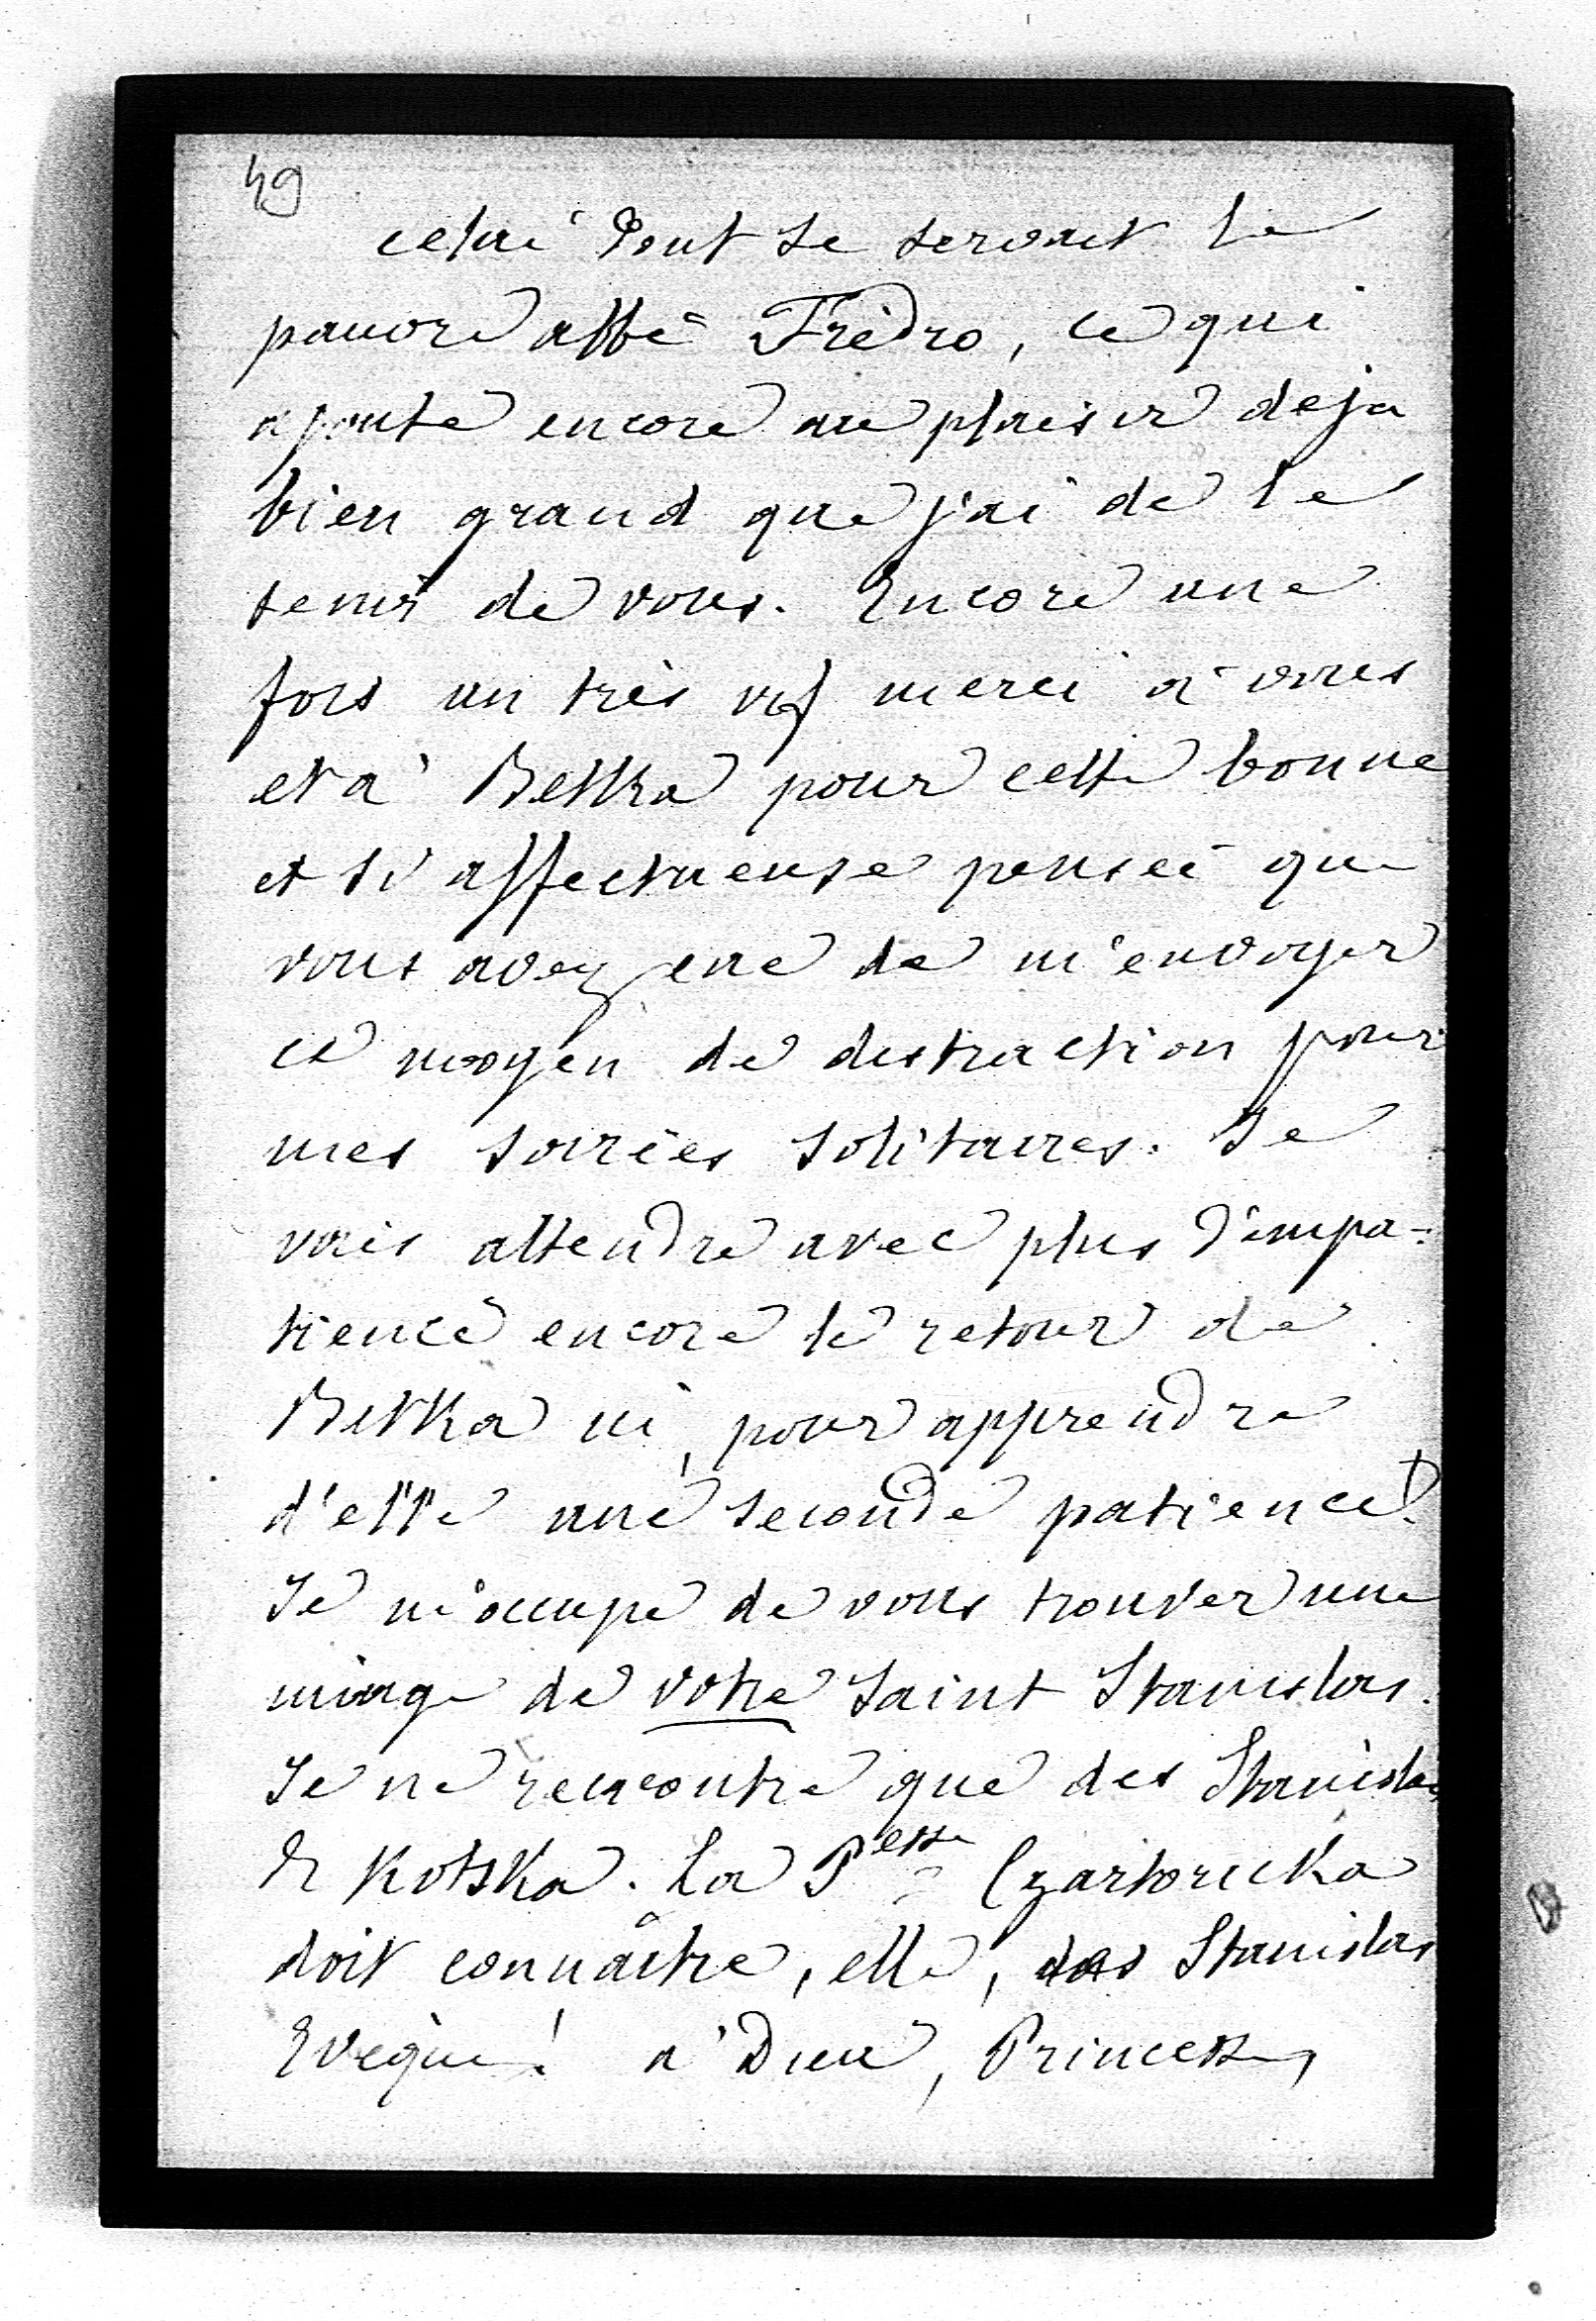 49
celui dont se servait le
pauvre abbé Frèdro, ce qui
ajoute encore au plaisir deja
bien grand que j'ai de le
tenir de vous. Encore une
fois un très vif merci à vous
et à Betka pour cette bonne
et si affectueuse pensée que
vous avez eue de m'envoyer
ce moyen de distraction pour
mes soirées solitaires. Je
vais attendre avec plus d'impa-
tience encore le retour de
Betka ici, pour apprendre
d'elle une seconde patience!
Je m'occupe de vous trouver une
image de votre Saint Stanislas.
Je ne rencontre que des Stanislas
de Kotska. La Pesse Czartoricka
doit connaître, elle, des Stanislas
Evèque! à Dieu, Princesse,